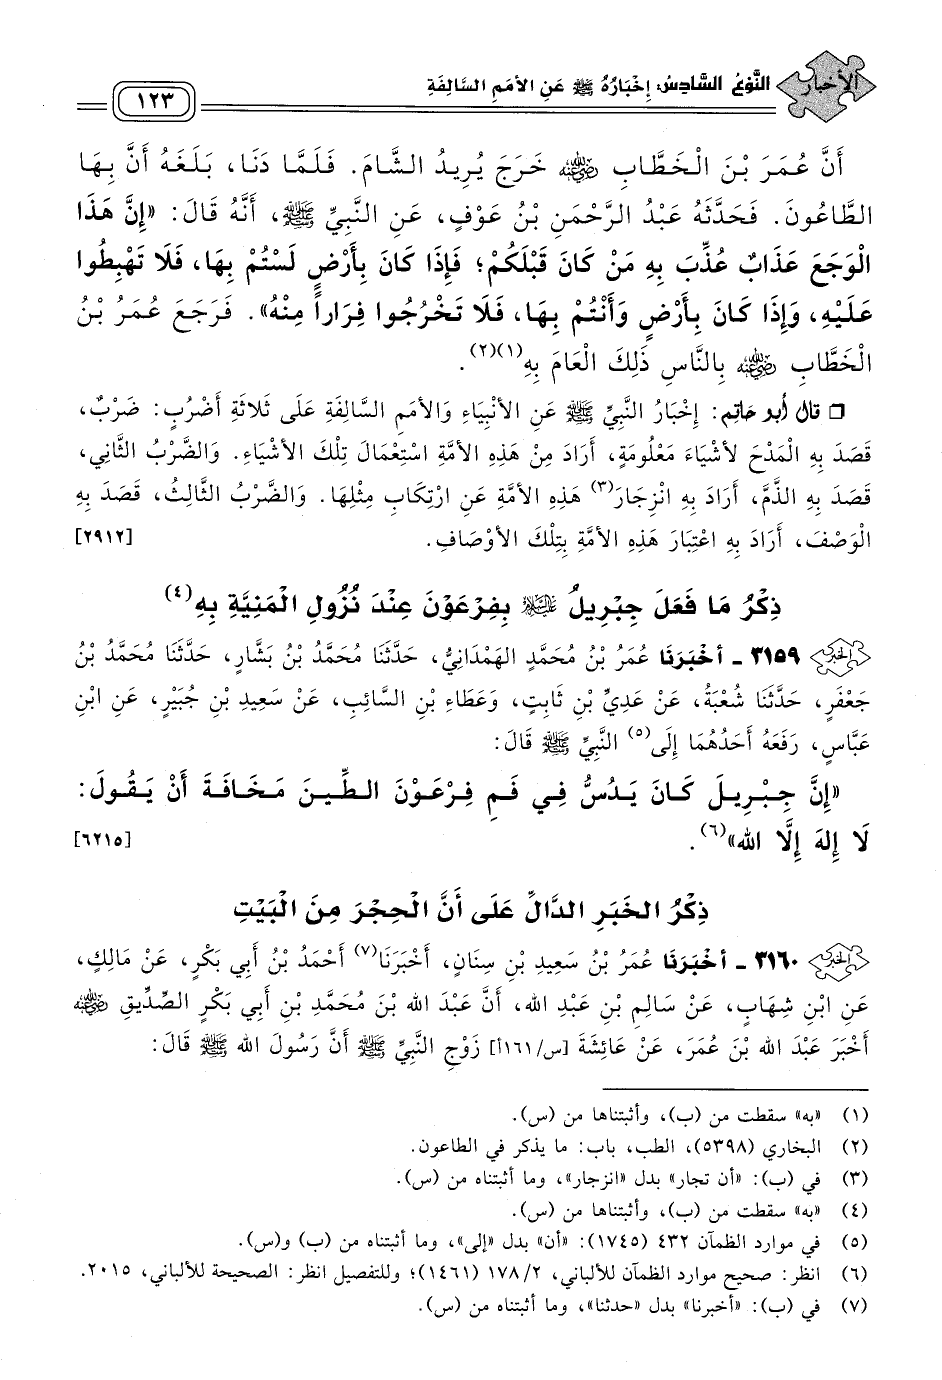 الأخبار
النَّوْعُ السَّادِسُ: إِخْبَارُهُ ﷺ عَنِ الأُمَمِ السَّالِفَةِ
١٢٣
أَنَّ عُمَرَ بْنَ الْخَطَّابِ رضي الله عنه خَرَجَ يُرِيدُ الشَّامَ. فَلَمَّا دَنَا، بَلَغَهُ أَنَّ بِهَا
الطَّاعُونَ. فَحَدَّثَهُ عَبْدُ الرَّحْمَنِ بْنُ عَوْفٍ، عَنِ النَّبِيِّ ﷺ، أَنَّهُ قَالَ: «إِنَّ هَذَا
الْوَجَعَ عَذَابٌ عُذِّبَ بِهِ مَنْ كَانَ قَبْلَكُمْ؛ فَإِذَا كَانَ بِأَرْضٍ لَسْتُمْ بِهَا، فَلَا تَهْبِطُوا
عَلَيْهِ، وَإِذَا كَانَ بِأَرْضٍ وَأَنْتُمْ بِهَا، فَلَا تَخْرُجُوا فِرَاراً مِنْهُ». فَرَجَعَ عُمَرُ بْنُ
الْخَطَّابِ رضي الله عنه بِالنَّاسِ ذَلِكَ الْعَامَ بِهِ(١)(٢).
❏ قال أبو حاتم: إِخْبَارُ النَّبِيِّ ﷺ عَنِ الأَنْبِيَاءِ وَالأُمَمِ السَّالِفَةِ عَلَى ثَلَاثَةِ أَضْرُبٍ: ضَرْبٌ،
قَصَدَ بِهِ الْمَدْحَ لأَشْيَاءَ مَعْلُومَةٍ، أَرَادَ مِنْ هَذِهِ الأُمَّةِ اسْتِعْمَالَ تِلْكَ الأَشْيَاءِ. وَالضَّرْبُ الثَّانِي،
قَصَدَ بِهِ الذَّمَّ، أَرَادَ بِهِ انْزِجَارَ(٣) هَذِهِ الأُمَّةِ عَنِ ارْتِكَابِ مِثْلِهَا. وَالضَّرْبُ الثَّالِثُ، قَصَدَ بِهِ
الْوَصْفَ، أَرَادَ بِهِ اعْتِبَارَ هَذِهِ الأُمَّةِ بِتِلْكَ الأَوْصَافِ. [٢٩١٢]
ذِكْرُ مَا فَعَلَ جِبْرِيلُ عليه السلام بِفِرْعَوْنَ عِنْدَ نُزُولِ الْمَنِيَّةِ بِهِ(٤)
الخبر ٣١٥٩ ـ أخْبَرَنَا عُمَرُ بْنُ مُحَمَّدٍ الهَمْدَانِيُّ، حَدَّثَنَا مُحَمَّدُ بْنُ بَشَّارٍ، حَدَّثَنَا مُحَمَّدُ بْنُ
جَعْفَرٍ، حَدَّثَنَا شُعْبَةُ، عَنْ عَدِيِّ بْنِ ثَابِتٍ، وَعَطَاءِ بْنِ السَّائِبِ، عَنْ سَعِيدِ بْنِ جُبَيْرٍ، عَنِ ابْنِ
عَبَّاسٍ، رَفَعَهُ أَحَدُهُمَا إِلَى(٥) النَّبِيِّ ﷺ قَالَ:
«إِنَّ جِبْرِيلَ كَانَ يَدُسُّ فِي فَمِ فِرْعَوْنَ الطِّينَ مَخَافَةَ أَنْ يَقُولَ:
لَا إِلهَ إِلَّا الله»(٦). [٦٢١٥]
ذِكْرُ الخَبَرِ الدَّالِّ عَلَى أَنَّ الْحِجْرَ مِنَ الْبَيْتِ
الخبر ٣١٦٠ ـ أخْبَرَنَا عُمَرُ بْنُ سَعِيدِ بْنِ سِنَانٍ، أَخْبَرَنَا(٧) أَحْمَدُ بْنُ أَبِي بَكْرٍ، عَنْ مَالِكٍ،
عَنِ ابْنِ شِهَابٍ، عَنْ سَالِمِ بْنِ عَبْدِ الله، أَنَّ عَبْدَ الله بْنَ مُحَمَّدِ بْنِ أَبِي بَكْرٍ الصِّدِّيقِ رضي الله عنه
أَخْبَرَ عَبْدَ الله بْنَ عُمَرَ، عَنْ عَائِشَةَ [س/١٦١أ] زَوْجِ النَّبِيِّ ﷺ أَنَّ رَسُولَ الله ﷺ قَالَ:
(١) «به» سقطت من (ب)، وأثبتناها من (س).
(٢) البخاري (٥٣٩٨)، الطب، باب: ما يذكر في الطاعون.
(٣) في (ب): «أن تجار» بدل «انزجار»، وما أثبتناه من (س).
(٤) «به» سقطت من (ب)، وأثبتناها من (س).
(٥) في موارد الظمآن ٤٣٢ (١٧٤٥): «أن» بدل «إلى»، وما أثبتناه من (ب) و(س).
(٦) انظر: صحيح موارد الظمآن للألباني، ١٧٨/٢ (١٤٦١)؛ وللتفصيل انظر: الصحيحة للألباني، ٢٠١٥.
(٧) في (ب): «أخبرنا» بدل «حدثنا»، وما أثبتناه من (س).